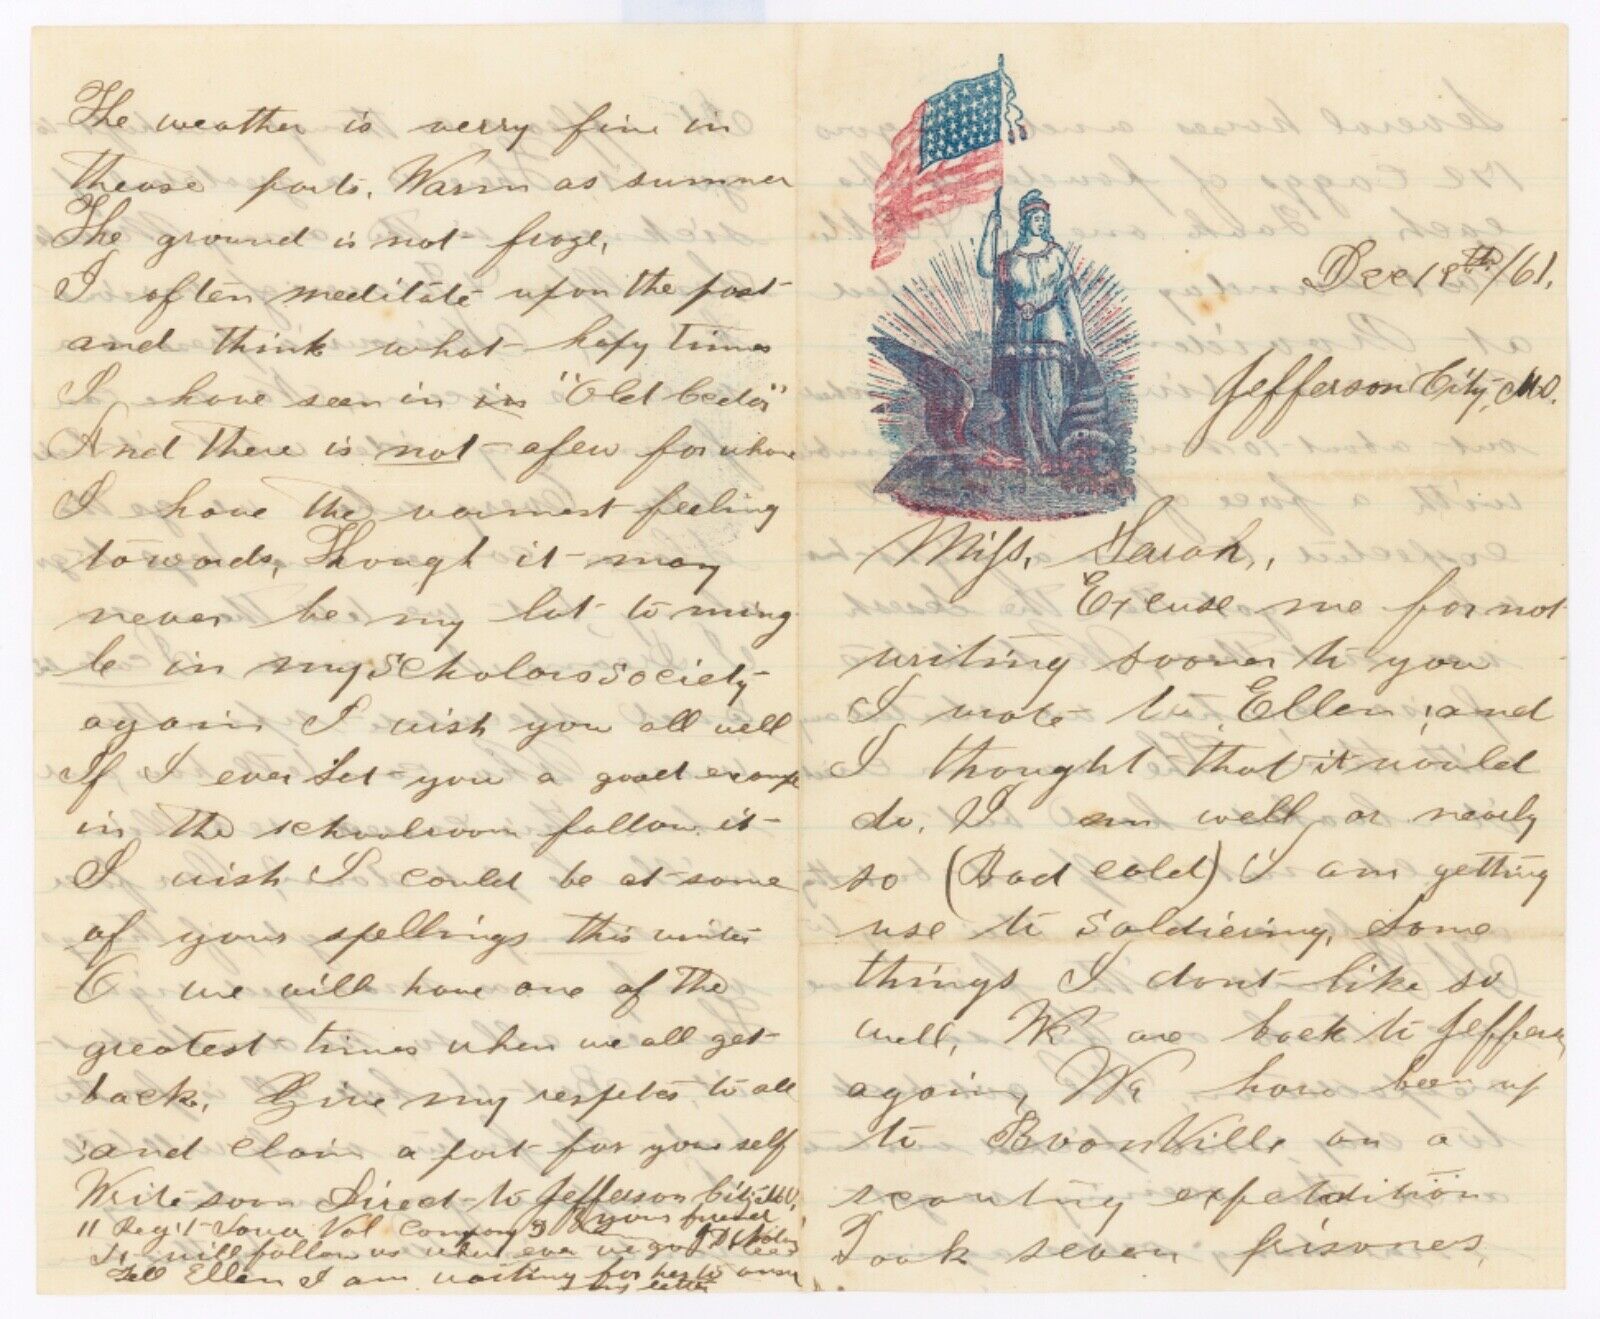 Dec 18th/61.
Jefferson City, Mo.
Miss, Sarah,
Excuse me for not
writing sooner to you
I wrote to Ellen, and
I thought that it would
do. I am well or nearly
so (Bad cold) I am getting
use to soldiering, Some
things I dont like so
well, We are back to Jefferson
again, We have been up
to BoonVille on a
scouting expetdition
Took seven prisones,
The weather is verry fine in
thease parts. Warm as summer
The ground is not froze,
I often meditate upon the past
and think what hapy times
I have seen in in "Old Cedar"
And there is not afew for whom
I have the warmest feeling
towards, Though it may
never be my lot to ming
le in my scholars society
again I wish you all well
If I ever set you a good exampl
in the schoolroom follow it
I wish I could be at some
of your spellings this winter
O we will have one of the
greatest times when we all get
back. Give my respets to all
and claim a part for your self
Write soon Direct to Jefferson City Mo,
11 Reg't Iowa Vol Company
your friend
It will follow us what ever we go
Tell Ellen I am waiting for her to answ
my letter